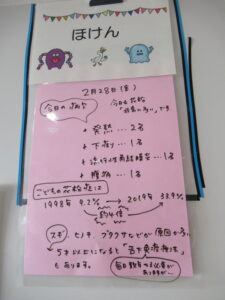 ほけん
2月28日(金)
今日の病気
今日も花粉
「非常に多い」です
+ 発熱…2名
+ 下痢…1名
+ 流行性角結膜炎…1名
+ 腹痛…1名
こどもの花粉症は
1998年 9.2% → 2019年 38.9%
約4倍
スギ、ヒノキ、ブタクサなどが原因が多い
5才以上になると「舌下免疫療法」
もあります。
毎日
必要が
ありますが…